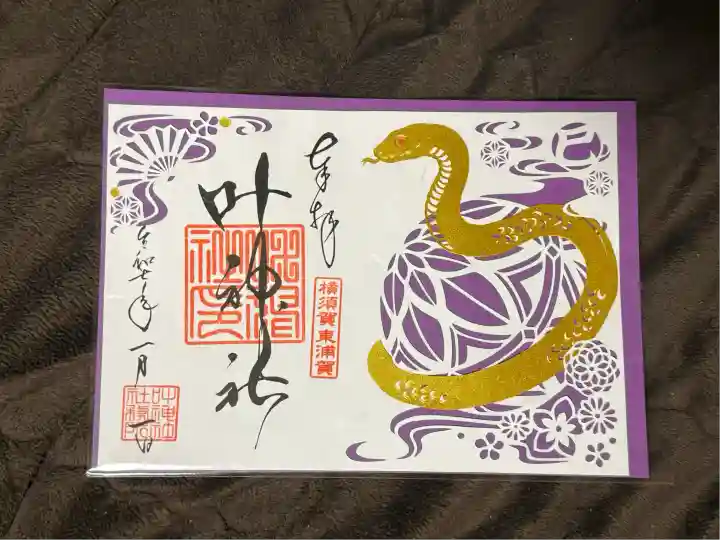 巳
奉拝
横須賀東浦賀
叶神社
令和七年一月一日